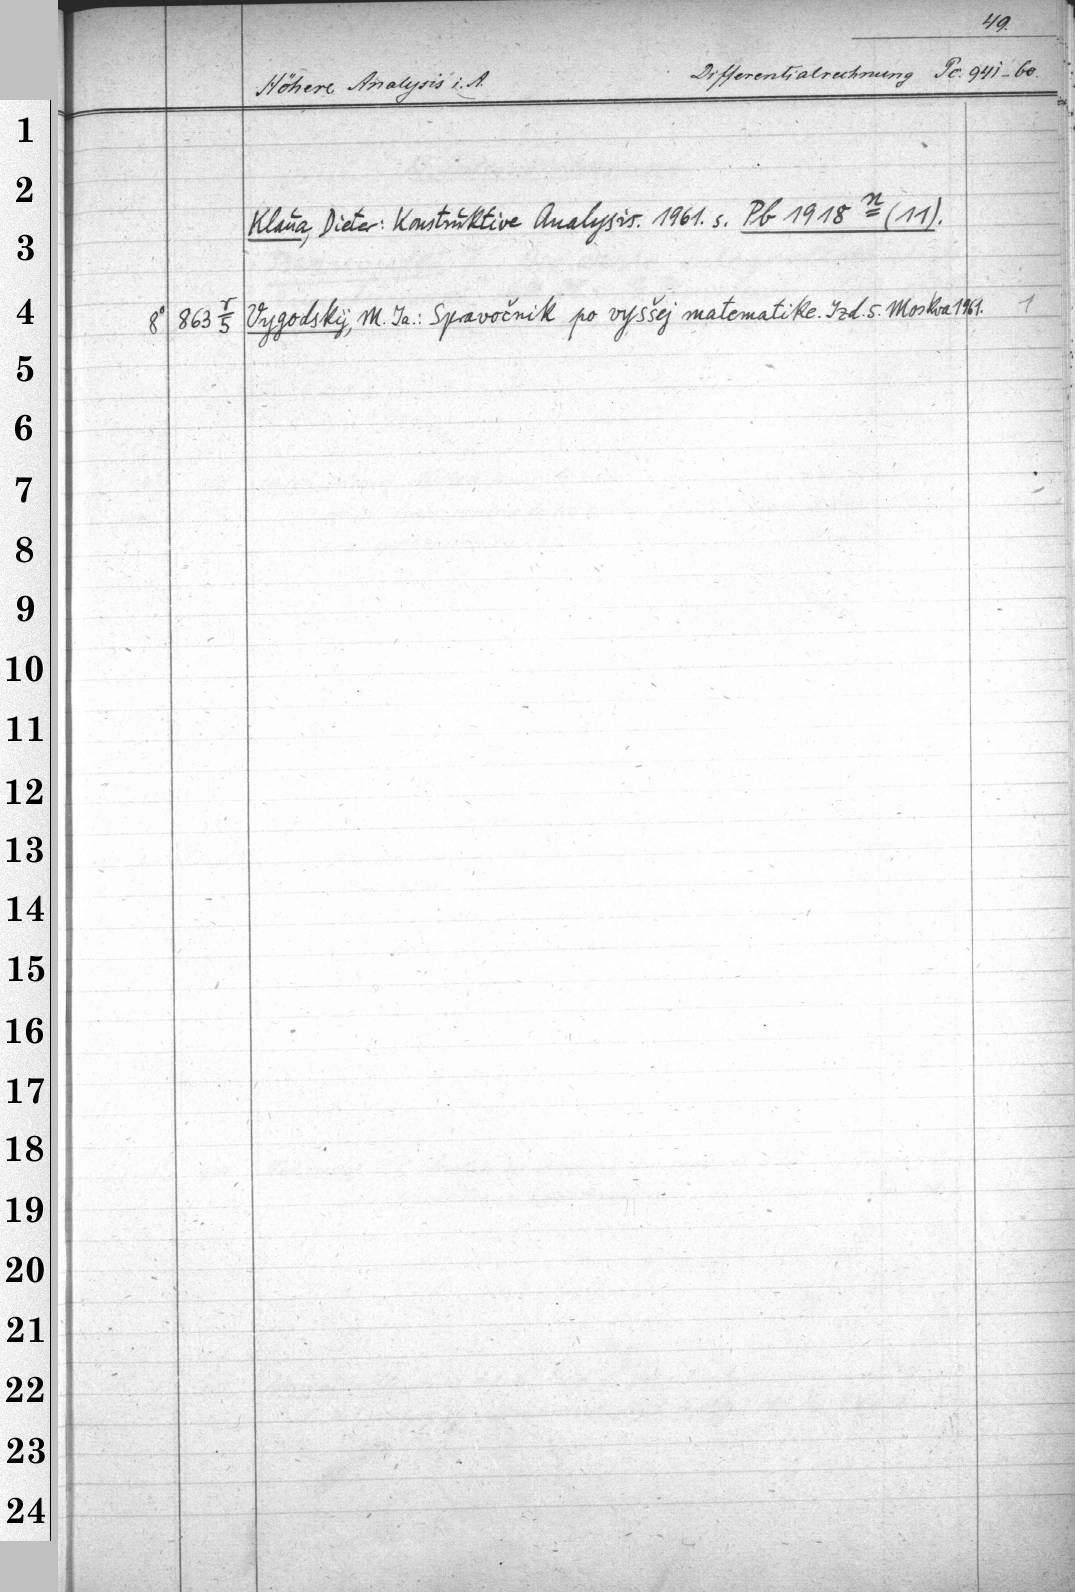 49.
Höhere Analysis i. A. Differentialrechnung Pc. 941-60.
1
2
Klaua, Dieter: Konstruktive Analysis. 1961. s. Pb 1918 n (11).
3
4 8° 863 r/5 Vygodskij, M. Ja.: Spravočnik po vysšej matematike. Izd. 5. Moskva 1961. 1
5
6
7
8
9
10
11
12
13
14
15
16
17
18
19
20
21
22
23
24